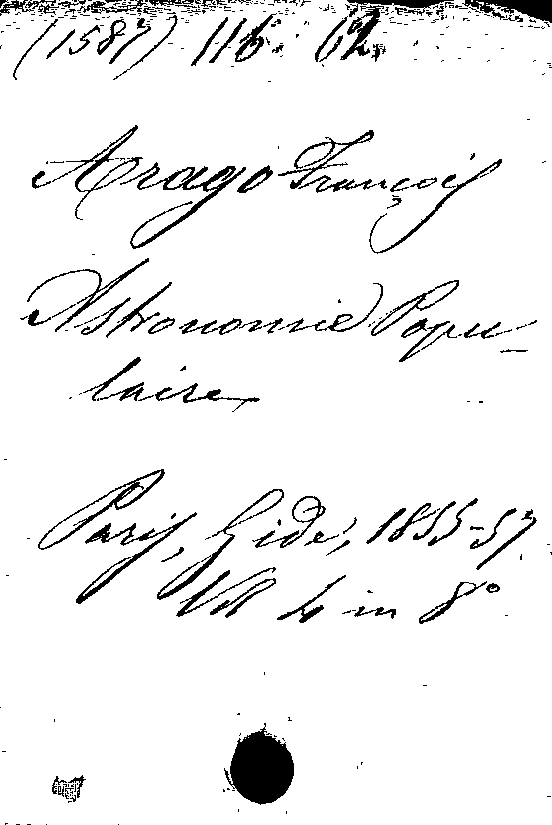 (1587) 116. 62.
Arago François
Astronomie Popu-
laire
Paris, Gide, 1855-57.
Vol 4 in 8°